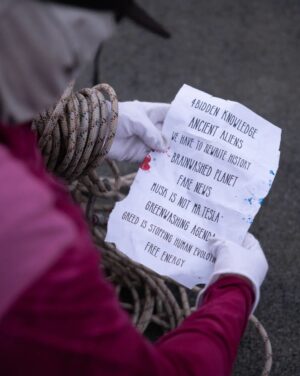 4BIDDEN KNOWLEDGE
ANCIENT ALIENS
WE HAVE TO REWRITE HISTORY
BRAINWASHED PLANET
FAKE NEWS
MUSK IS NOT MR.TESLA
GREENWASHING AGENDA
GREED IS STOPPING HUMAN EVOLU
FREE ENERGY